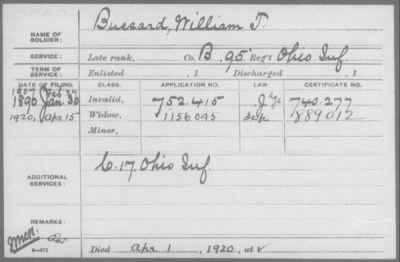 NAME OF SOLDIER: Bussard, William T.
SERVICE: Late rank, Co. B. 95 Reg't Ohio Inf.
TERM OF SERVICE: Enlisted , 1 Discharged , 1
DATE OF FILING. CLASS. APPLICATION NO. LAW. CERTIFICATE NO.
1907 Feb
1890 Jan 30 Invalid, 752.415 740.277
1920, Apr 15 Widow, 1156095 889012
Minor,
ADDITIONAL SERVICES: C. 17. Ohio Inf.
REMARKS:
3-471
Died Apr 1 , 1920, at